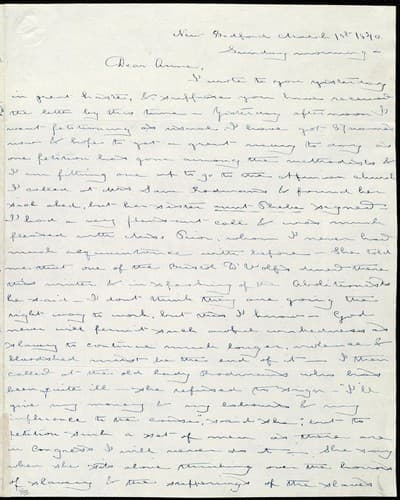 New Bedford March 1st 1840.
Sunday morning -
Dear Anne,
I wrote to you yesterday
in great haste, & suppose you have received
the letter by this time - Yesterday afternoon I
went petitioning as usual I have got 87 names
now & hope to get a great many to day as
one petition has gone among the methodists &
I am fitting one out to go to the African church
I called at Mrs Sam Rodmans & found her
sick abed, but her sister Phebe signed
I had a very pleasant call & was much
pleased with Miss Prior, whom I never had
much acquaintance with before - She told
me that one of the Bristol D'Wolfs was there
this winter & in speaking of the Abolitionists
he said - I dont think they are going the
right way to work, but this I know - God
never will permit such awful wickedness as
slavery to continue much longer, violence &
bloodshed must be the end of it - I then
called at the old lady Rodmans who has
been quite ill - she refused to sign "I'll
give my money & my labours & my
influence to the cause", said she; but to
petition such a set of men as there are
in Congress I will never do it - She says
when she sits alone thinking over the horrors
of slavery & the sufferings of the slaves